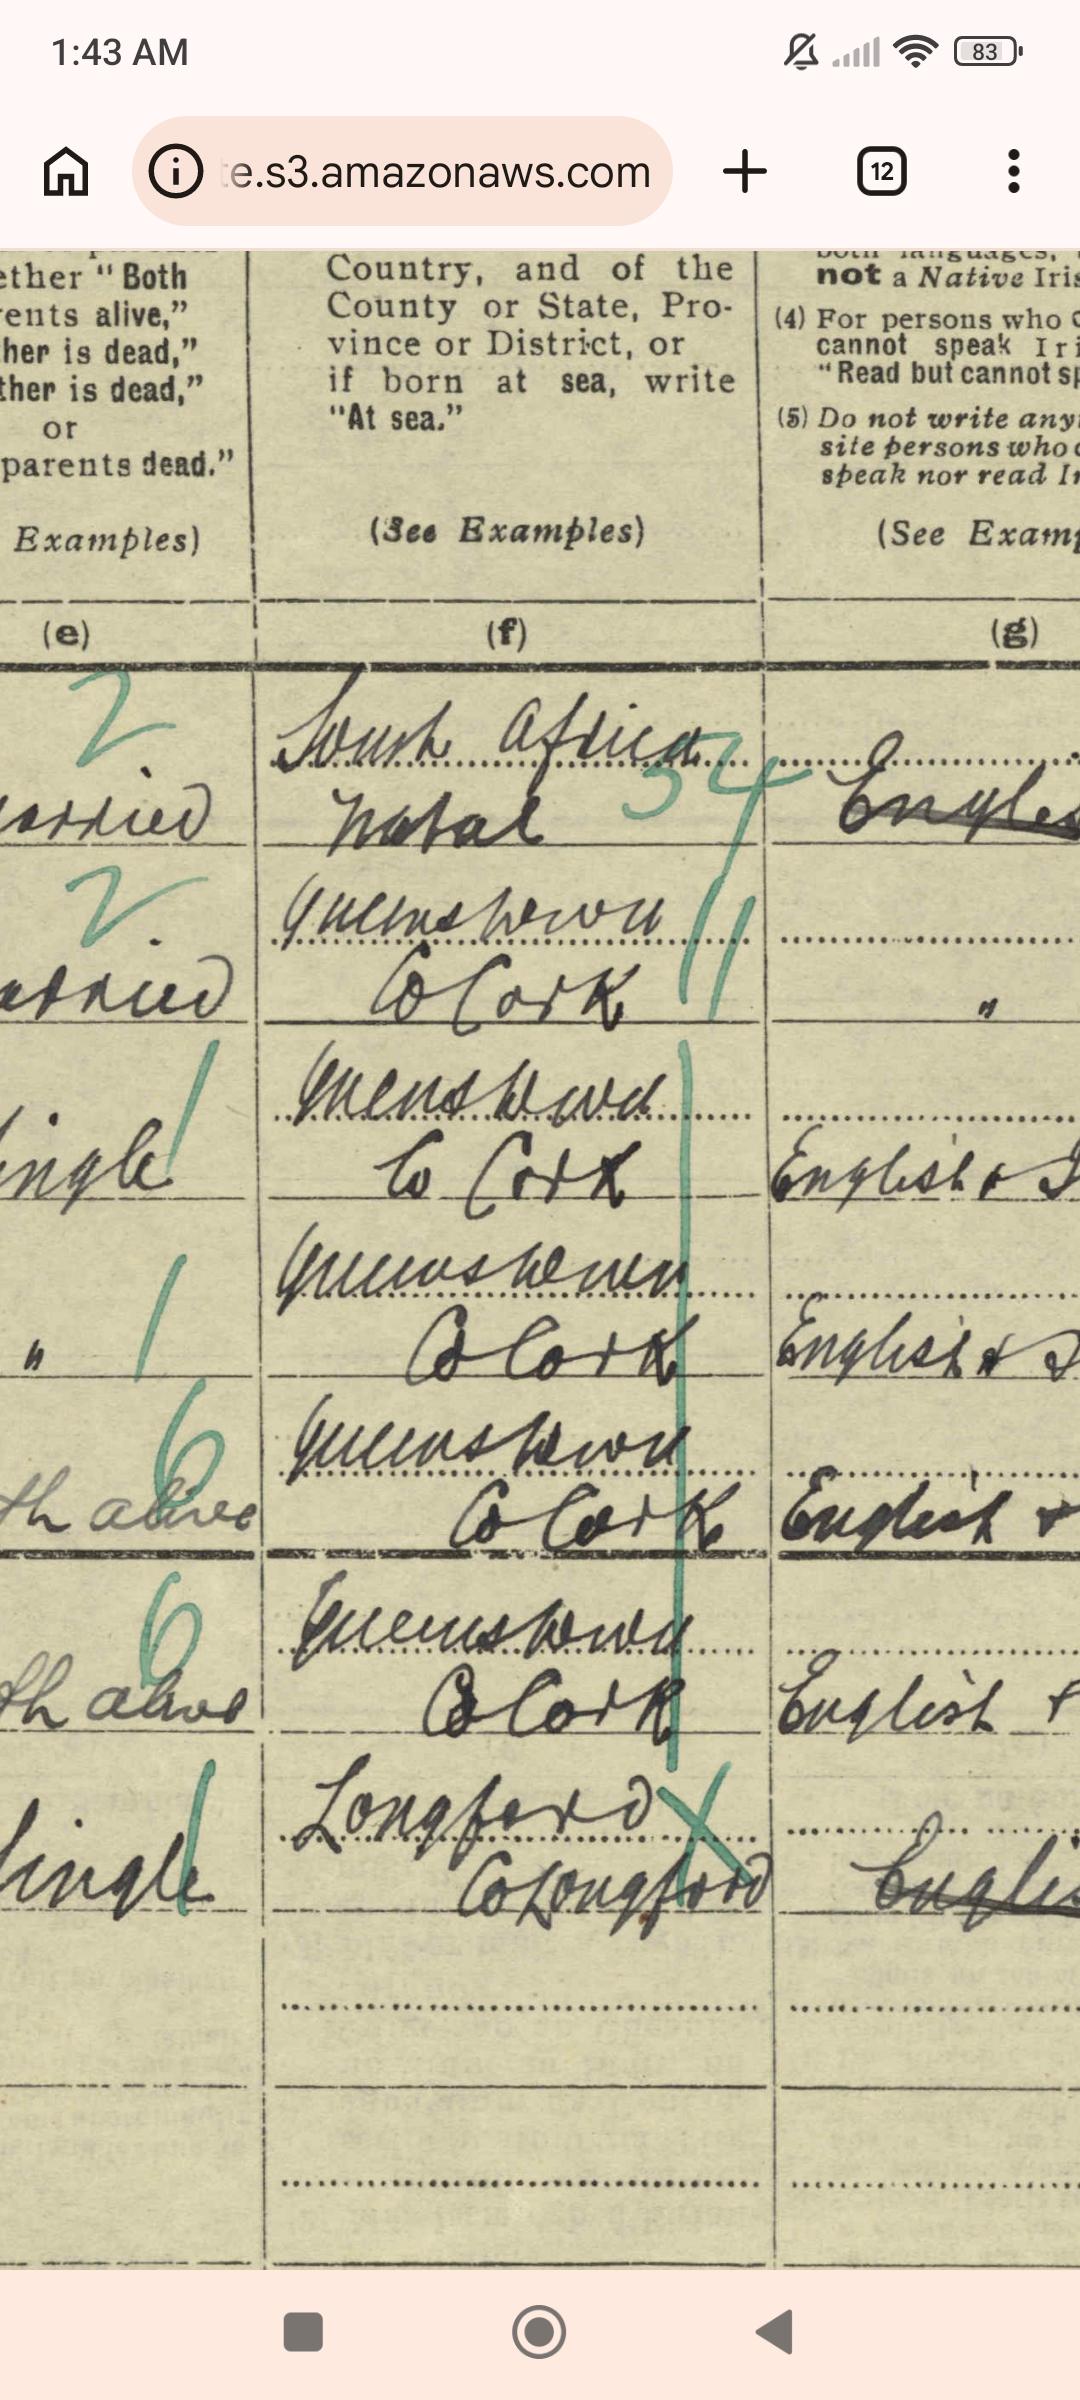 1:43 AM
83
e.s3.amazonaws.com
12
ether "Both
rents alive,"
her is dead,"
ther is dead,"
or
parents dead."
Examples)
(e)
Country, and of the
County or State, Pro-
vince or District, or
if born at sea, write
"At sea."
(See Examples)
(f)
both languages,
not a Native Iris
(4) For persons who c
cannot speak Iri
"Read but cannot sp
(5) Do not write any
site persons who c
speak nor read Ir
(See Examp
(g)
2
South Africa
54
arried
Natal
Englis
2
Queenstown
11
arried
Co Cork
"
1
Queenstown
ingle
Co Cork
English & I
1
Queenstown
"
Co Cork
English & I
6
Queenstown
th alive
Co Cork
English &
6
Queenstown
th alive
Co Cork
English &
1
Longford
X
Single
Co Longford
Englis